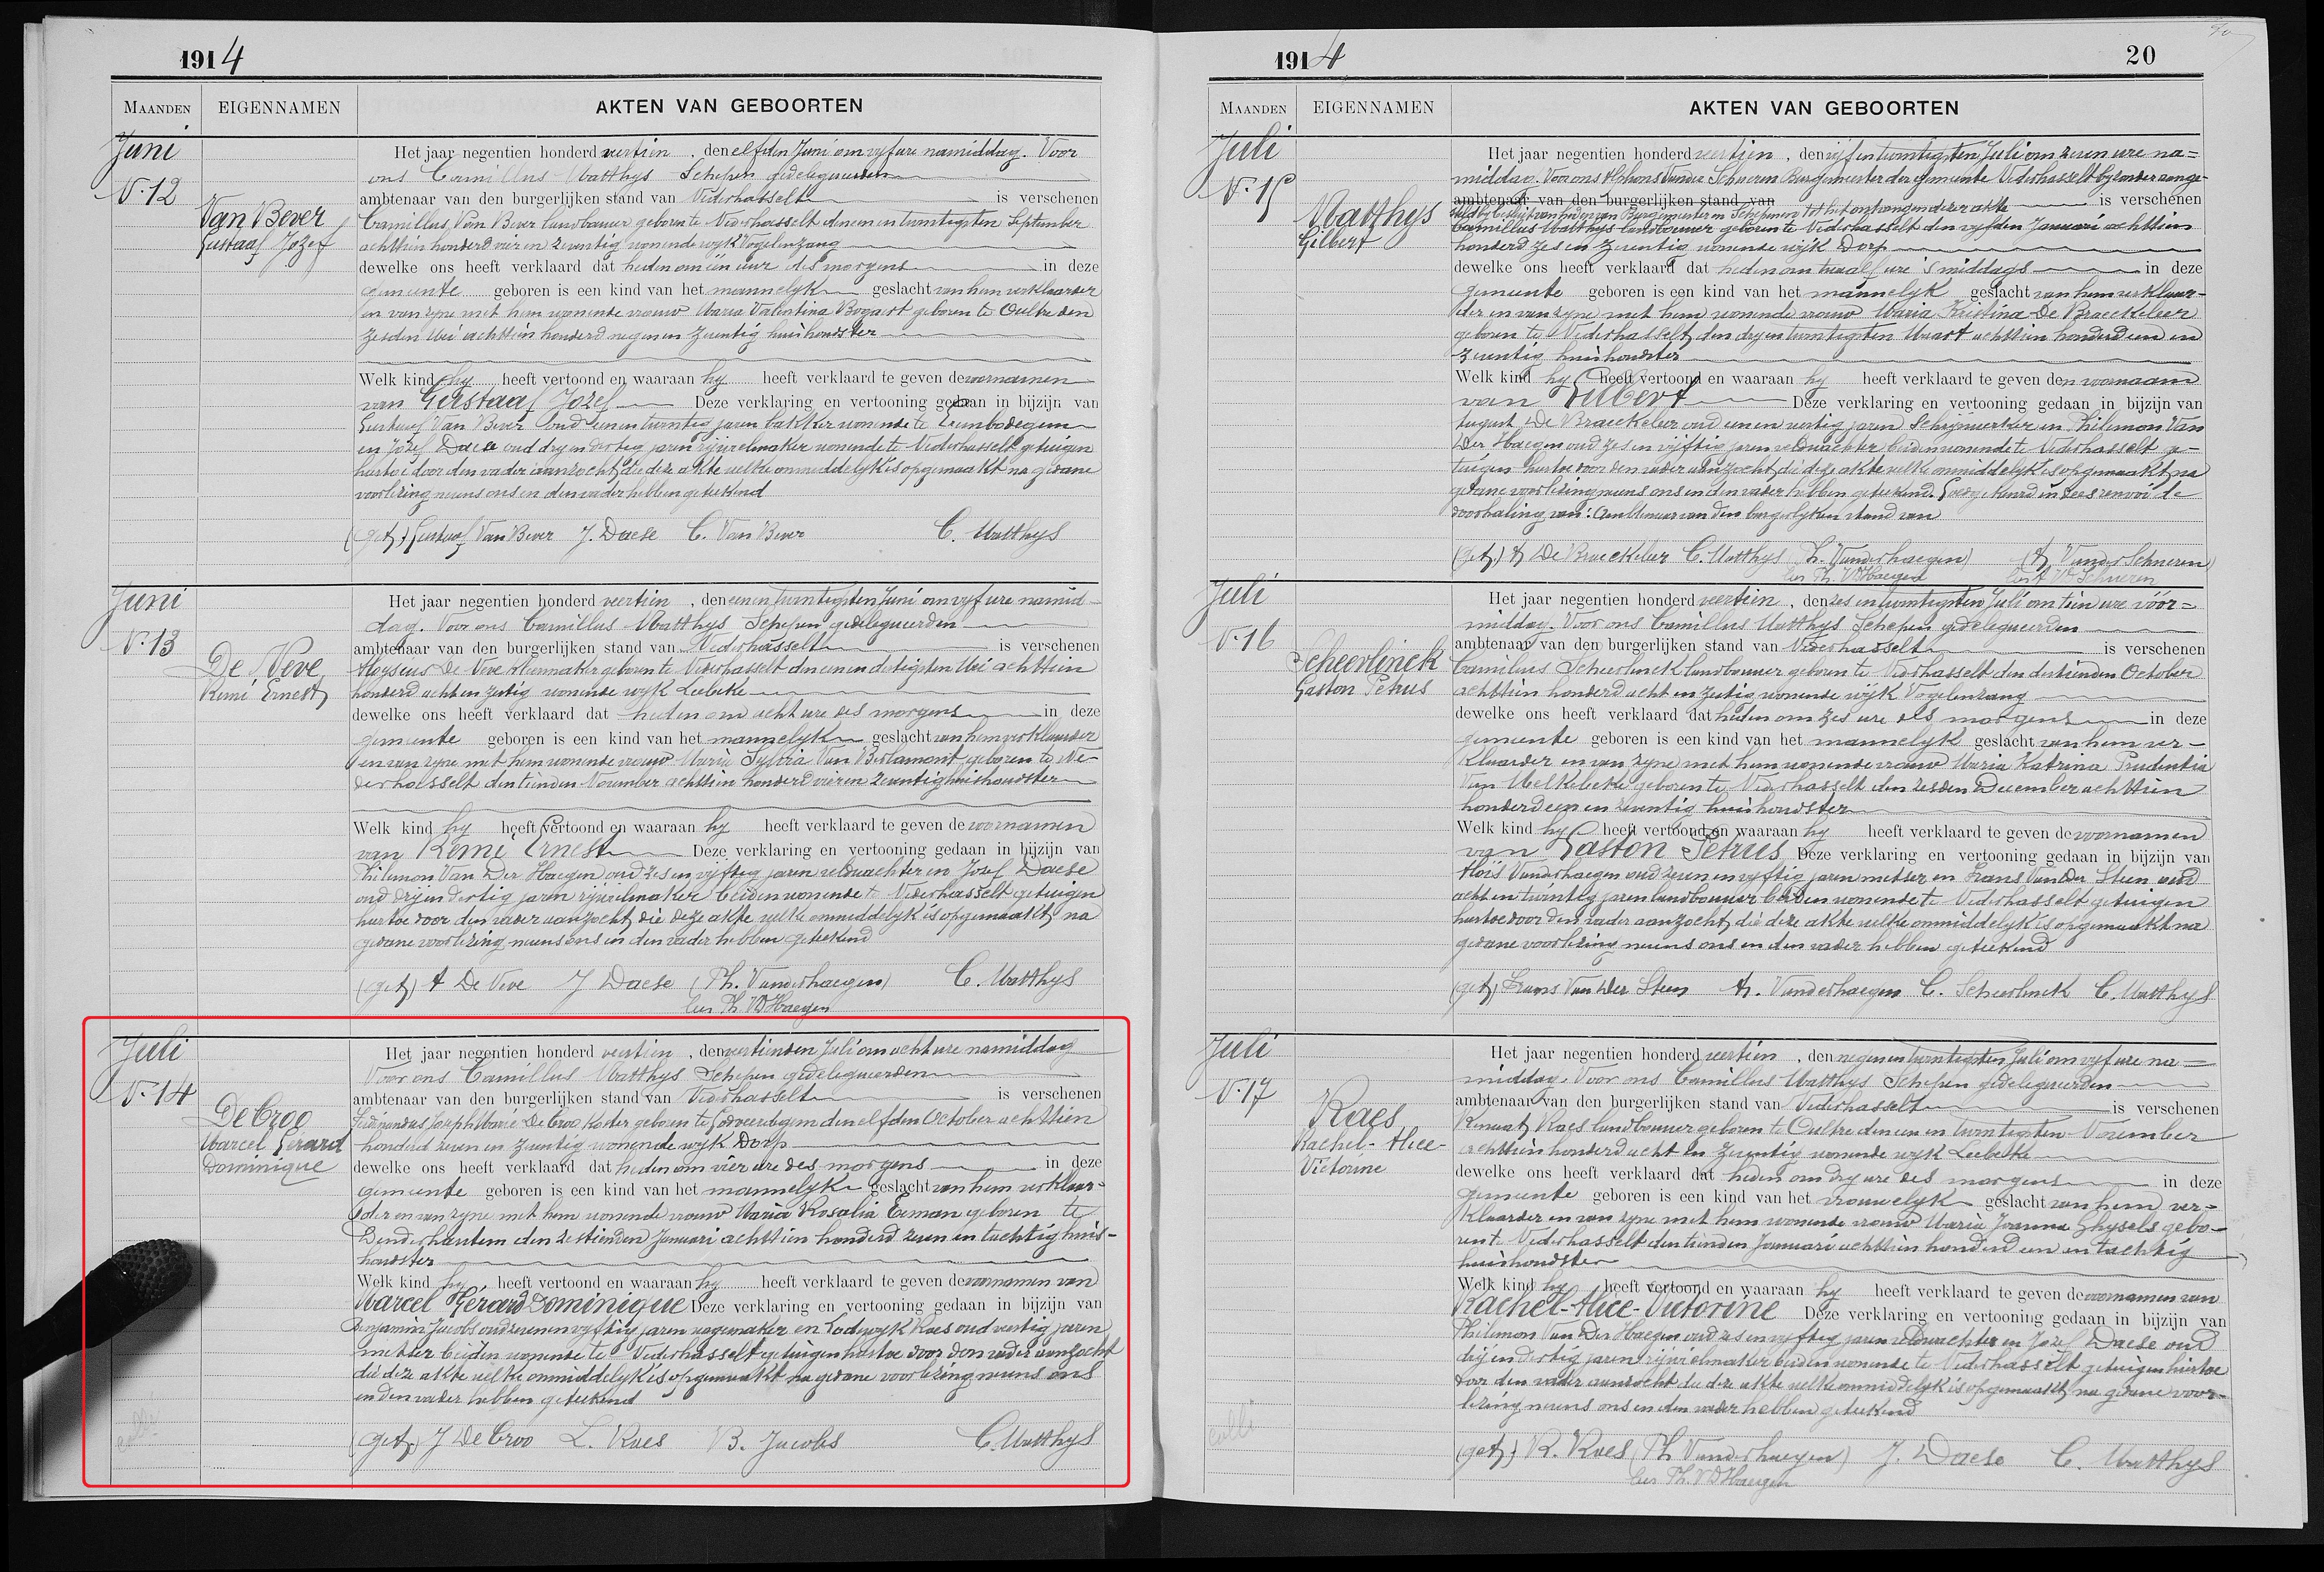 1914
MAANDEN EIGENNAMEN AKTEN VAN GEBOORTEN
Juni
N. 12
Van Bever
Gustaaf Jozef
Het jaar negentien honderd veertien, den elfden Juni om vyf ure namiddag. Voor
ons Camillus Matthys Schepen gedelegueerden
ambtenaar van den burgerlijken stand van Nederhasselt is verschenen
Camillus Van Bever landbouwer geboren te Nederhasselt den een en twintigsten September
achttien honderd vier en zeventig wonende wyk Vogelenzang
dewelke ons heeft verklaard dat heden om één uur des morgens in deze
gemeente geboren is een kind van het mannelyk geslacht van hem verklaarder
en van zyne met hem wonende vrouw Maria Valentina Bogaert geboren te Oultre den
zesden Mei achttien honderd negen en zeventig huishoudster
Welk kind hy heeft vertoond en waaraan hy heeft verklaard te geven de voornamen
van Gustaaf Jozef Deze verklaring en vertooning gedaan in bijzijn van
Gustaaf Van Bever oud een en twintig jaren bakker wonende te Denderbodegem
en Jozef Daese oud dry en dertig jaren rijwielmaker wonende te Nederhasselt getuigen
hiertoe door den vader aanzocht, die deze akte welke onmiddelyk is opgemaakt na gedane
voorlezing nevens ons en den vader hebben geteekend
(get.) Gustaaf Van Bever J. Daese C. Van Bever C. Matthys
Juni
N. 13
De Neve
Remi Ernest
Het jaar negentien honderd veertien, den een en twintigsten Juni om vyf ure namid-
dag. Voor ons Camillus Matthys Schepen gedelegueerden
ambtenaar van den burgerlijken stand van Nederhasselt is verschenen
Aloysius De Neve kleermaker geboren te Nederhasselt den een en dertigsten Mei achttien
honderd acht en zestig wonende wyk Leebeke
dewelke ons heeft verklaard dat heden om acht ure des morgens in deze
gemeente geboren is een kind van het mannelyk geslacht van hem verklaarder
en van zyne met hem wonende vrouw Maria Sylvia Van Berlamont geboren te Ne-
derhasselt den tienden November achttien honderd vier en zeventig huishoudster
Welk kind hy heeft vertoond en waaraan hy heeft verklaard te geven de voornamen
van Remi Ernest Deze verklaring en vertooning gedaan in bijzijn van
Philemon Van Der Haegen oud zes en vyftig jaren veldwachter en Jozef Daese
oud dry en dertig jaren rijwielmaker beiden wonende te Nederhasselt getuigen
hiertoe door den vader aanzocht, die deze akte welke onmiddelyk is opgemaakt, na
gedane voorlezing nevens ons en den vader hebben geteekend
(get.) A De Neve J Daese (Ph. Vanderhaegen) C. Matthys
lees Ph. VDHaegen
Juli
N. 14
De Croo
Marcel Gérard
Dominique
Het jaar negentien honderd veertien, den veertienden Juli om acht ure namiddag
Voor ons Camillus Matthys Schepen gedelegueerden
ambtenaar van den burgerlijken stand van Nederhasselt is verschenen
Ferdinandus Joseph Marie De Croo koster geboren te Godveerdegem den elfden October achttien
honderd zeven en zeventig wonende wyk Dorp
dewelke ons heeft verklaard dat heden om vier ure des morgens in deze
gemeente geboren is een kind van het mannelyk geslacht van hem verklaar-
der en van zyne met hem wonende vrouw Maria Rosalia Eeman geboren te
Denderhautem den zestienden Januari achttien honderd zeven en tachtig huis-
houdster
Welk kind hy heeft vertoond en waaraan hy heeft verklaard te geven de voornamen van
Marcel Gérard Dominique Deze verklaring en vertooning gedaan in bijzijn van
Benjamin Jacobs oud zeven en vyftig jaren wagemaker en Lodewyk Raes oud veertig jaren
metser beiden wonende te Nederhasselt getuigen hiertoe door den vader aanzocht
die deze akte welke onmiddelyk is opgemaakt na gedane voorlezing nevens ons
en den vader hebben geteekend
(get.) J De Croo L. Raes B. Jacobs C. Matthys
1914 20
MAANDEN EIGENNAMEN AKTEN VAN GEBOORTEN
Juli
N. 15
Matthys
Gilbert
Het jaar negentien honderd veertien, den vijf en twintigsten Juli om zeven ure na=
middag. Voor ons Alphons Vander Schueren Burgemeester der gemeente Nederhasselt byzonder aange-
ambtenaar van den burgerlijken stand van is verschenen
Camillus Matthys landbouwer geboren te Nederhasselt den vyfden Januari achttien
honderd zes en zeventig wonende wijk Dorp
dewelke ons heeft verklaard dat heden om twaalf ure 's middags in deze
gemeente geboren is een kind van het mannelyk geslacht van hem verklaar-
der en van zyne met hem wonende vrouw Maria Kristina De Braeckeleer
geboren te Nederhasselt, den dry en twintigsten Maart achttien honderd een en
zeventig huishoudster
Welk kind hy heeft vertoond en waaraan hy heeft verklaard te geven den voornaam
van Gilbert Deze verklaring en vertooning gedaan in bijzijn van
August De Braeckeleer oud een en veertig jaren Schrijnwerker en Philemon Van
Der Haegen oud zes en vijftig jaren veldwachter beiden wonende te Nederhasselt ge-
tuigen hiertoe door den vader aanzocht, die deze akte welke onmiddelyk is opgemaakt, na
gedane voorlezing nevens ons en den vader hebben geteekend. Goedgekeurd in dees renvooi de
doorhaling van: Ambtenaar van den burgerlyken stand van
(get.) A De Braeckeleer C. Matthys Ph. Vanderhaegen) (A Vander Schueren)
lees Ph. VDHaegen lees A VD Schueren
Juli
N. 16
Scheerlinck
Gaston Petrus
Het jaar negentien honderd veertien, den zes en twintigsten Juli om tien ure vóór=
middag. Voor ons Camillus Matthys Schepen gedelegueerden
ambtenaar van den burgerlijken stand van Nederhasselt is verschenen
Camillus Scheerlinck landbouwer geboren te Nederhasselt den dertienden October
achttien honderd acht en zestig wonende wijk Vogelenzang
dewelke ons heeft verklaard dat heden om zes ure des morgens in deze
gemeente geboren is een kind van het mannelyk geslacht van hem ver-
klaarder en van zyne met hem wonende vrouw Maria Katrina Prudentia
Van Melkebeke geboren te Nederhasselt den zesden December achttien
honderd een en zeventig huishoudster
Welk kind hy heeft vertoond en waaraan hy heeft verklaard te geven de voornamen
van Gaston Petrus Deze verklaring en vertooning gedaan in bijzijn van
Aloïs Vanderhaegen oud zeven en vyftig jaren metser en Frans Van Der Steen oud
acht en twintig jaren landbouwer beiden wonende te Nederhasselt getuigen
hiertoe door den vader aanzocht, die deze akte welke onmiddelyk is opgemaakt na
gedane voorlezing nevens ons en den vader hebben geteekend
(get.) Frans Van Der Steen A. Vanderhaegen C. Scheerlinck C. Matthys
Juli
N. 17
Raes
Rachel-Alice-
Victorine
Het jaar negentien honderd veertien, den negen en twintigsten Juli om vyf ure na=
middag. Voor ons Camillus Matthys Schepen gedelegueerden
ambtenaar van den burgerlijken stand van Nederhasselt is verschenen
Renaat Raes landbouwer geboren te Oultre den een en twintigsten November
achttien honderd acht en zeventig wonende wyk Leebeke
dewelke ons heeft verklaard dat heden om dry ure des morgens in deze
gemeente geboren is een kind van het vrouwelyk geslacht van hem ver-
klaarder en van zyne met hem wonende vrouw Maria Joanna Ghysels gebo-
ren te Nederhasselt den tienden Januari achttien honderd een en tachtig
huishoudster
Welk kind hy heeft vertoond en waaraan hy heeft verklaard te geven de voornamen van
Rachel-Alice-Victorine Deze verklaring en vertooning gedaan in bijzijn van
Philemon Van Der Haegen oud zes en vyftig jaren veldwachter en Jozef Daese oud
drij en dertig jaren rijwielmaker beiden wonende te Nederhasselt getuigen hiertoe
door den vader aanzocht die deze akte welke onmiddelyk is opgemaakt, na gedane voor-
lezing nevens ons en den vader hebben geteekend
(get.) R. Raes (Ph Vanderhaegen) J. Daese C. Matthys
lees Ph. VDHaegen